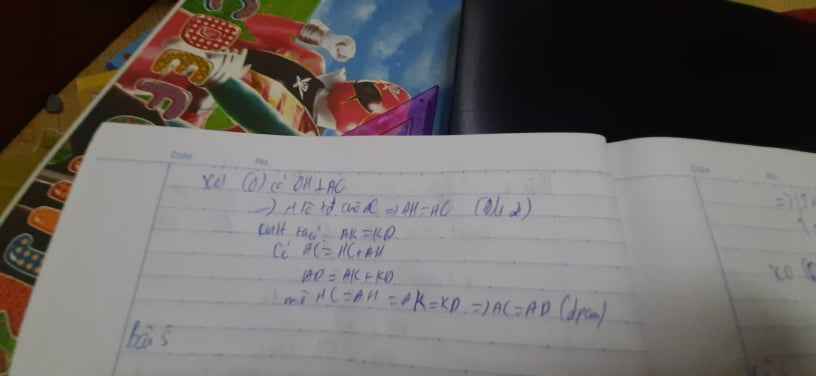 Date No.
Xét (O) có OH⊥AC
=> H là tđ của AC => AH=HC (Đlí 2)
CMTT ta có AK=KD
Có AC=HC+AH
AD=AK+KD
mà HC=AH=AK=KD =>AC=AD (đpcm)
Bài 5
Date No.